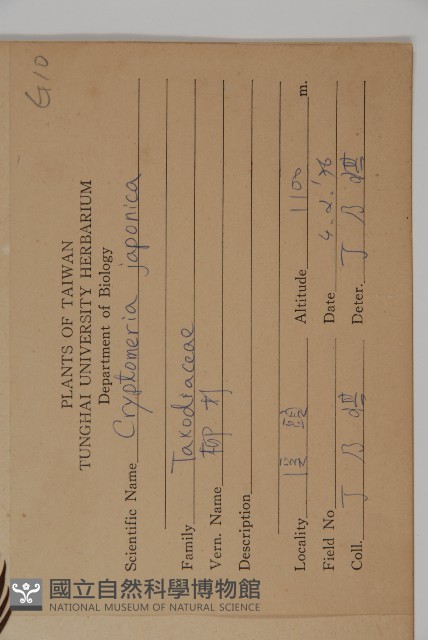 G10
PLANTS OF TAIWAN
TUNGHAI UNIVERSITY HERBARIUM
Department of Biology
Scientific Name Cryptomeria japonica
Family Taxodiaceae
Vern. Name 柳杉
Description
Locality 溪頭 Altitude 1100 m.
Field No Date 4.2.'76
Coll. J B Deter. J B
國立自然科學博物館
NATIONAL MUSEUM OF NATURAL SCIENCE